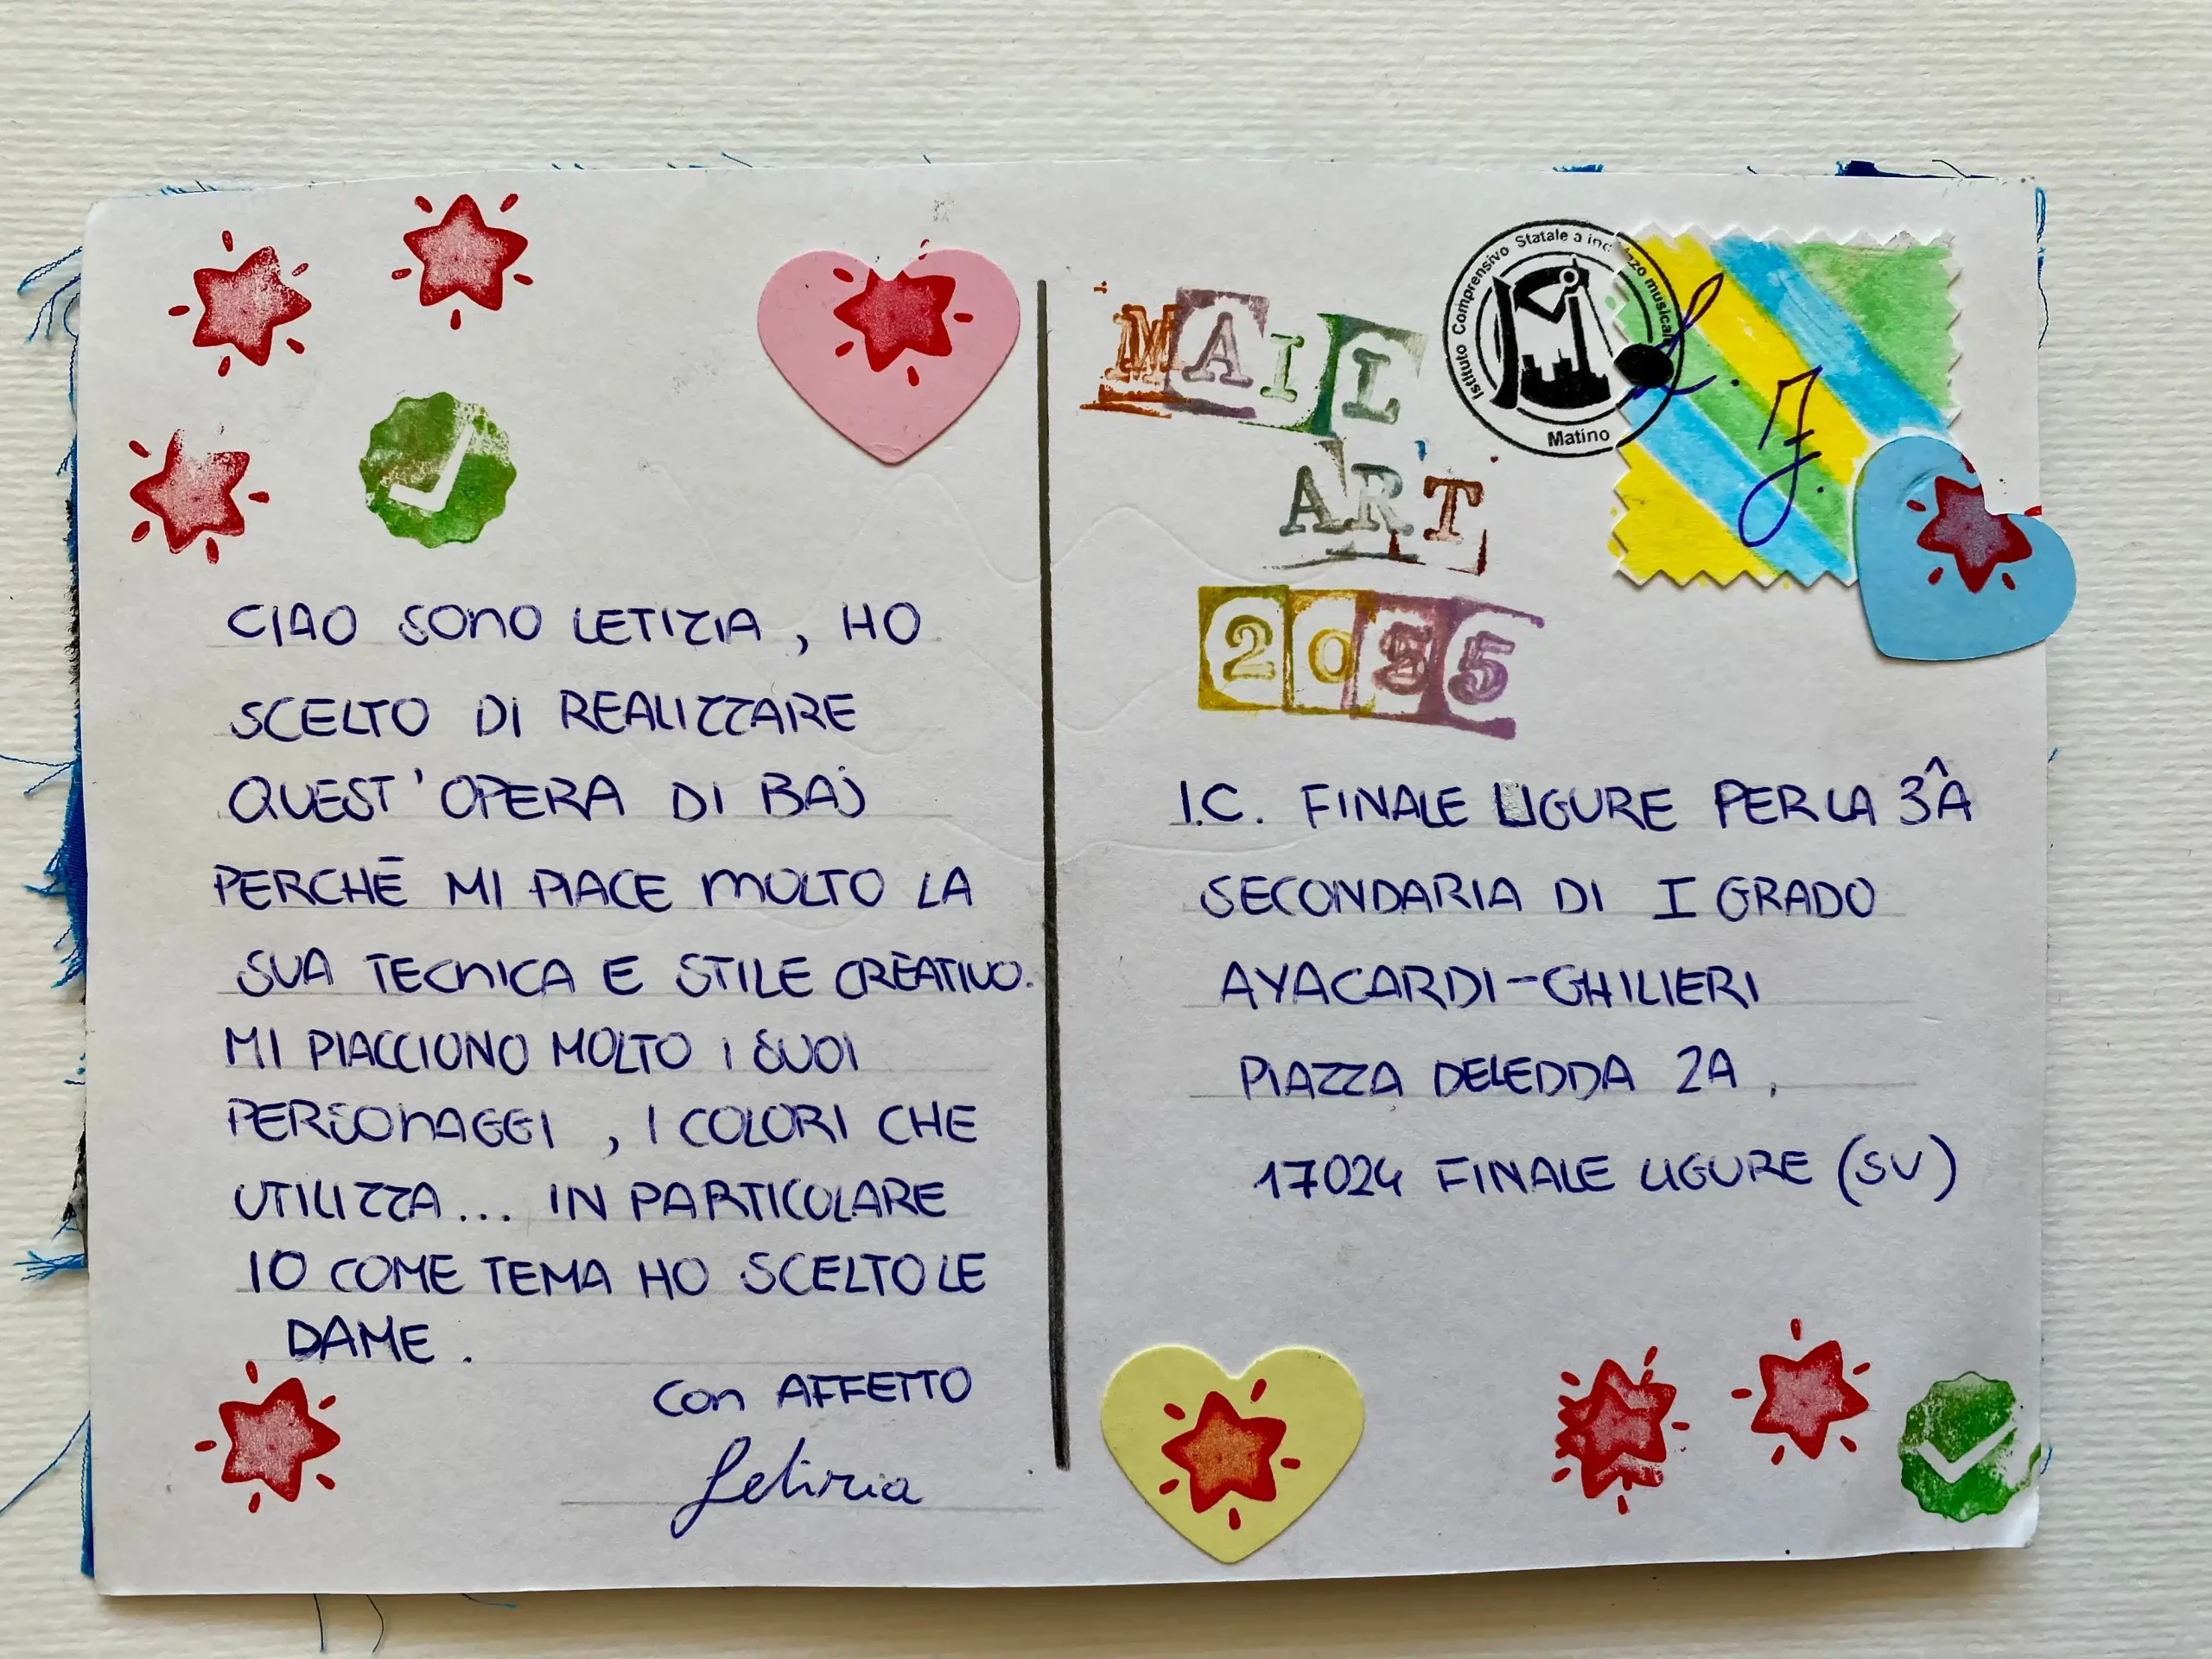 CIAO SONO LETIZIA, HO
SCELTO DI REALIZZARE
QUEST'OPERA DI BAJ
PERCHÉ MI PIACE MOLTO LA
SUA TECNICA E STILE CREATIVO.
MI PIACCIONO MOLTO I SUOI
PERSONAGGI, I COLORI CHE
UTILIZZA... IN PARTICOLARE
IO COME TEMA HO SCELTO LE
DAME.
CON AFFETTO
Letizia
MAIL
ART
Istituto Comprensivo Statale a indirizzo musicale
Matino
L. J.
I.C. FINALE LIGURE PER LA 3^A
SECONDARIA DI I GRADO
AYACARDI-GHILIERI
PIAZZA DELEDDA 2A,
17024 FINALE LIGURE (SV)